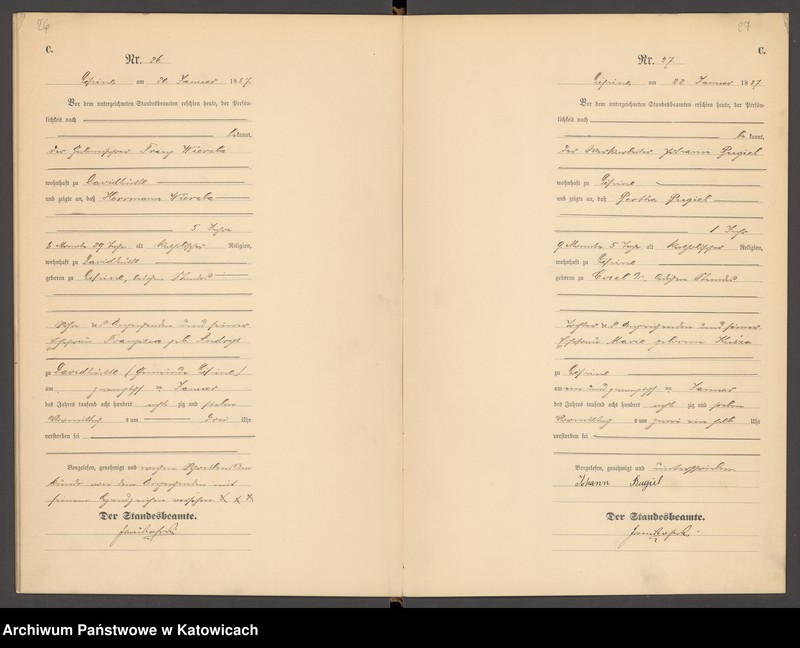 26
C.
Nr. 26
Lipine am 20 Januar 1887.
Vor dem unterzeichneten Standesbeamten erschien heute, der Persön-
lichkeit nach
bekannt,
der Franz Wieczla
wohnhaft zu Davidhütte
und zeigte an, daß Herrmann
5 Jahre
8 Monate 29 Tage alt katholischer Religion,
wohnhaft zu Davidhütte
geboren zu Lipine, ledigen Standes
Sohn des Anzeigenden und seiner
Ehefrau Franziska geb.
zu Davidhütte (Gemeinde Lipine)
am Januar
des Jahres tausend acht hundert acht zig und sieben
Vormittags um drei Uhr
verstorben sei
Vorgelesen, genehmigt und wegen
von dem Anzeigenden mit
seinem Handzeichen versehen X X X
Der Standesbeamte.
27
C.
Nr. 27
Lipine am 22 Januar 1887
Vor dem unterzeichneten Standesbeamten erschien heute, der Persön-
lichkeit nach
bekannt,
der Johann Rugiel
wohnhaft zu Lipine
und zeigte an, daß Bertha Rugiel
1 Jahr
9 Monate 5 Tage alt katholischer Religion,
wohnhaft zu Lipine
geboren zu ledigen Standes
Tochter des Anzeigenden und seiner
Ehefrau Marie geborene
zu Lipine
am ein und zwanzigsten Januar
des Jahres tausend acht hundert acht zig und sieben
Vormittags um zwei ein halb Uhr
verstorben sei
Vorgelesen, genehmigt und unterschrieben
Johann Rugiel
Der Standesbeamte.
Archiwum Państwowe w Katowicach